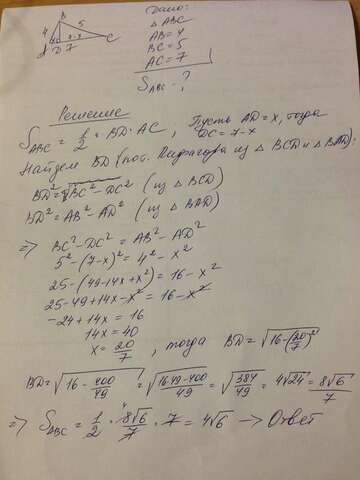 B
4 5
A D 7 C
7-x
Дано:
△ ABC
AB = 4
BC = 5
AC = 7
S_ABC - ?
Решение
S_ABC = 1/2 · BD · AC ; Пусть AD = x, тогда
DC = 7-x
Найдем BD (по т. Пифагора из △ BCD и △ BAD):
BD² = √BC² - DC² (из △ BCD)
BD² = AB² - AD² (из △ BAD)
⇒ BC² - DC² = AB² - AD²
5² - (7-x)² = 4² - x²
25 - (49 - 14x + x²) = 16 - x²
25 - 49 + 14x - x² = 16 - x²
-24 + 14x = 16
14x = 40
x = 20/7 , тогда BD = √16 - (20/7)²
BD = √16 - 400/49 = √(16·49 - 400)/49 = √384/49 = 4√24 = 8√6/7
⇒ S_ABC = 1/2 · 8√6/7 · 7 = 4√6 → Ответ